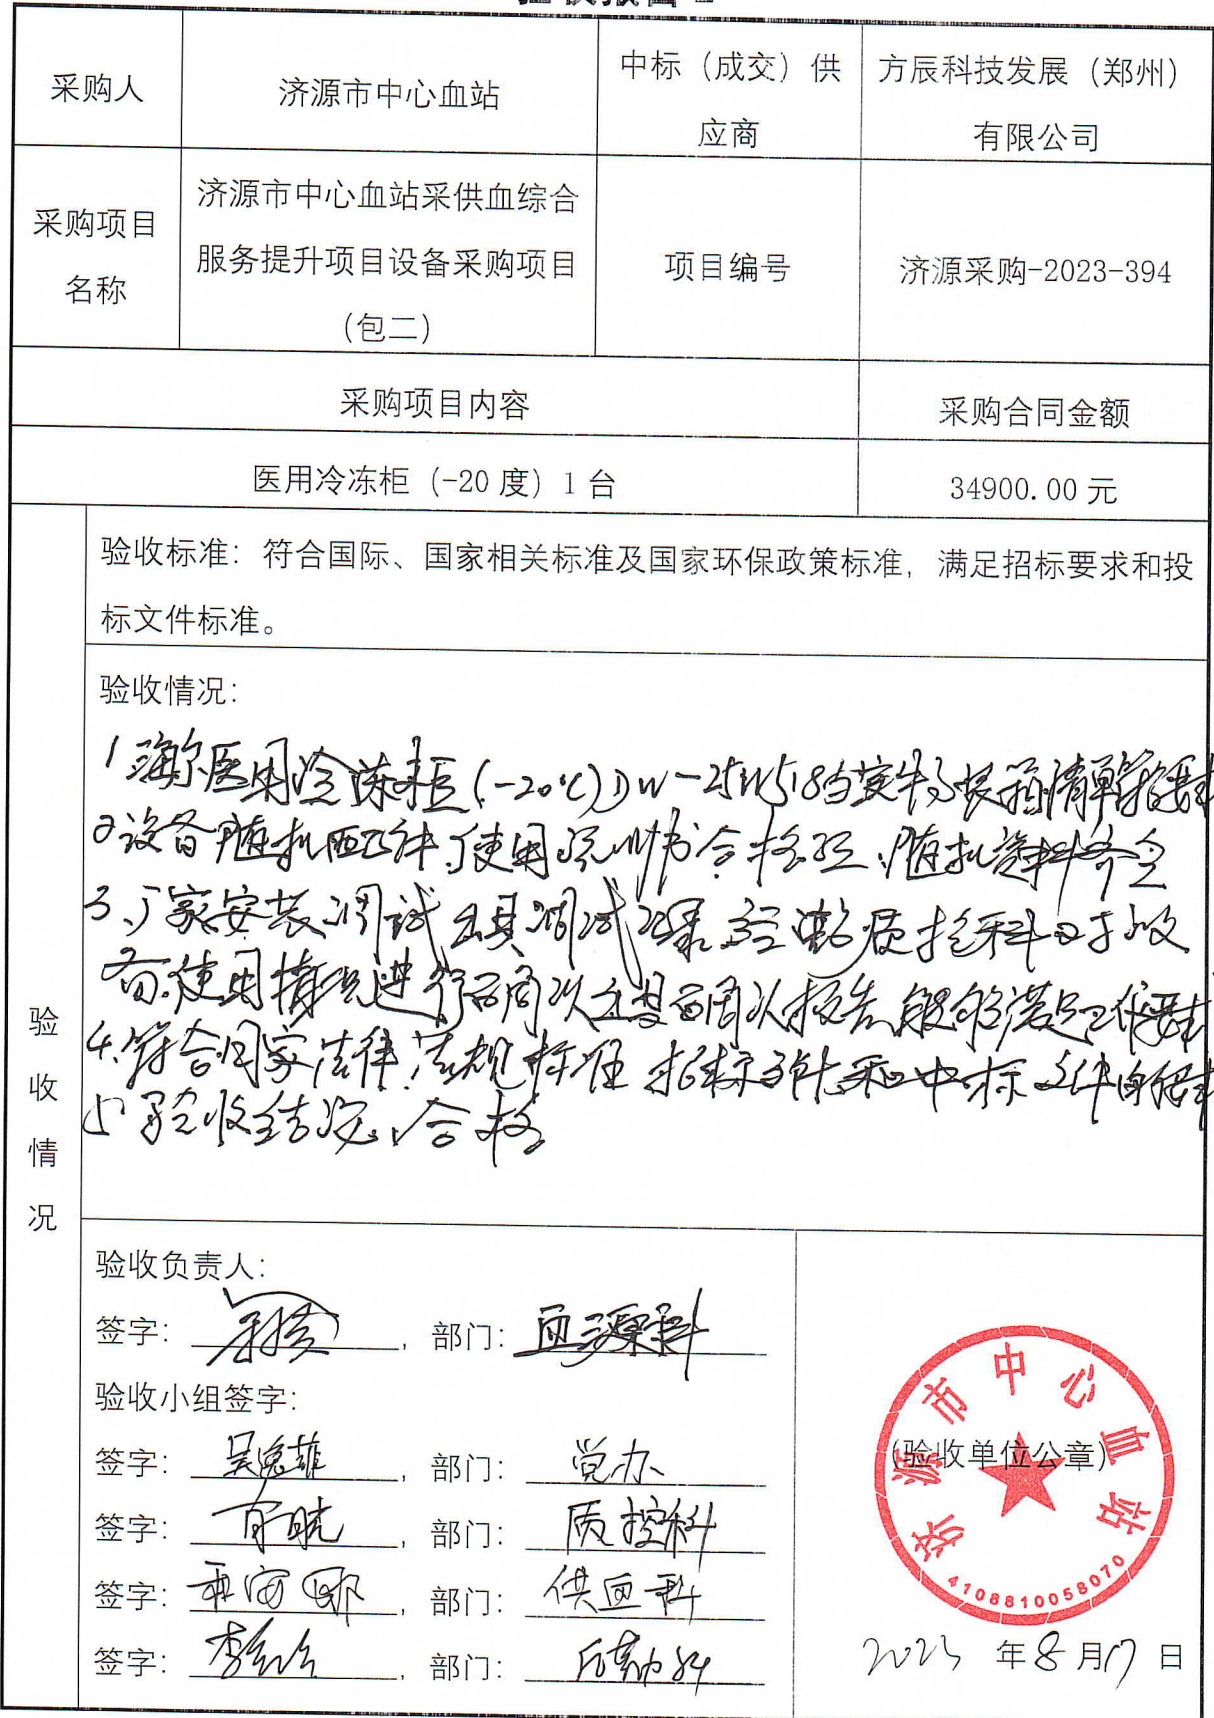 采购人
济源市中心血站
中标（成交）供
应商
方辰科技发展（郑州）
有限公司
采购项目
名称
济源市中心血站采供血综合
服务提升项目设备采购项目
（包二）
项目编号
济源采购-2023-394
采购项目内容
采购合同金额
医用冷冻柜（-20 度）1 台
34900.00 元
验收情况
验收标准：符合国际、国家相关标准及国家环保政策标准，满足招标要求和投
标文件标准。
验收情况：
1 海尔医用冷冻柜(-20℃)DW-25W518 装箱清单
2 设备随机配件、使用说明书、合格证、随机资料齐全
3、厂家安装调试 出具调试 质控科对设
备使用情况进行
4.符合国家法律、法规标准 招标 和中标文件的
5 验收结论、合格
验收负责人：
签字： ，部门：血源科
验收小组签字：
签字： ，部门：党办
签字： ，部门：质控科
签字： ，部门：供血科
签字： ，部门：
（验收单位公章）
济源市中心血站
4108810058070
2023 年 8 月 17 日